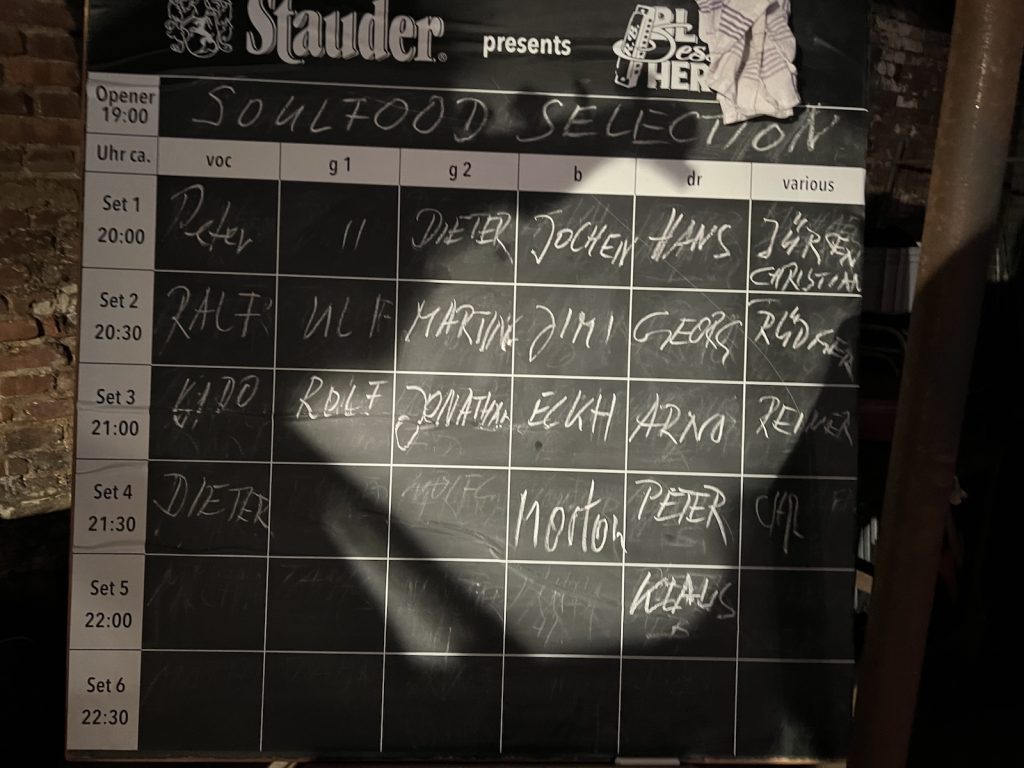 Stauder presents
Opener 19:00 SOULFOOD SELECTION
Uhr ca. voc g 1 g 2 b dr various
Set 1 20:00 Peter 11 DIETER JOCHEN HANS JÜRGEN CHRISTIAN
Set 2 20:30 RALF ULF MARTIN JIMI GEORG RÜDIGER
Set 3 21:00 ROLF JONATHAN ECKH ARNO REINER
Set 4 21:30 DIETER Morton PETER
Set 5 22:00 KLAUS
Set 6 22:30